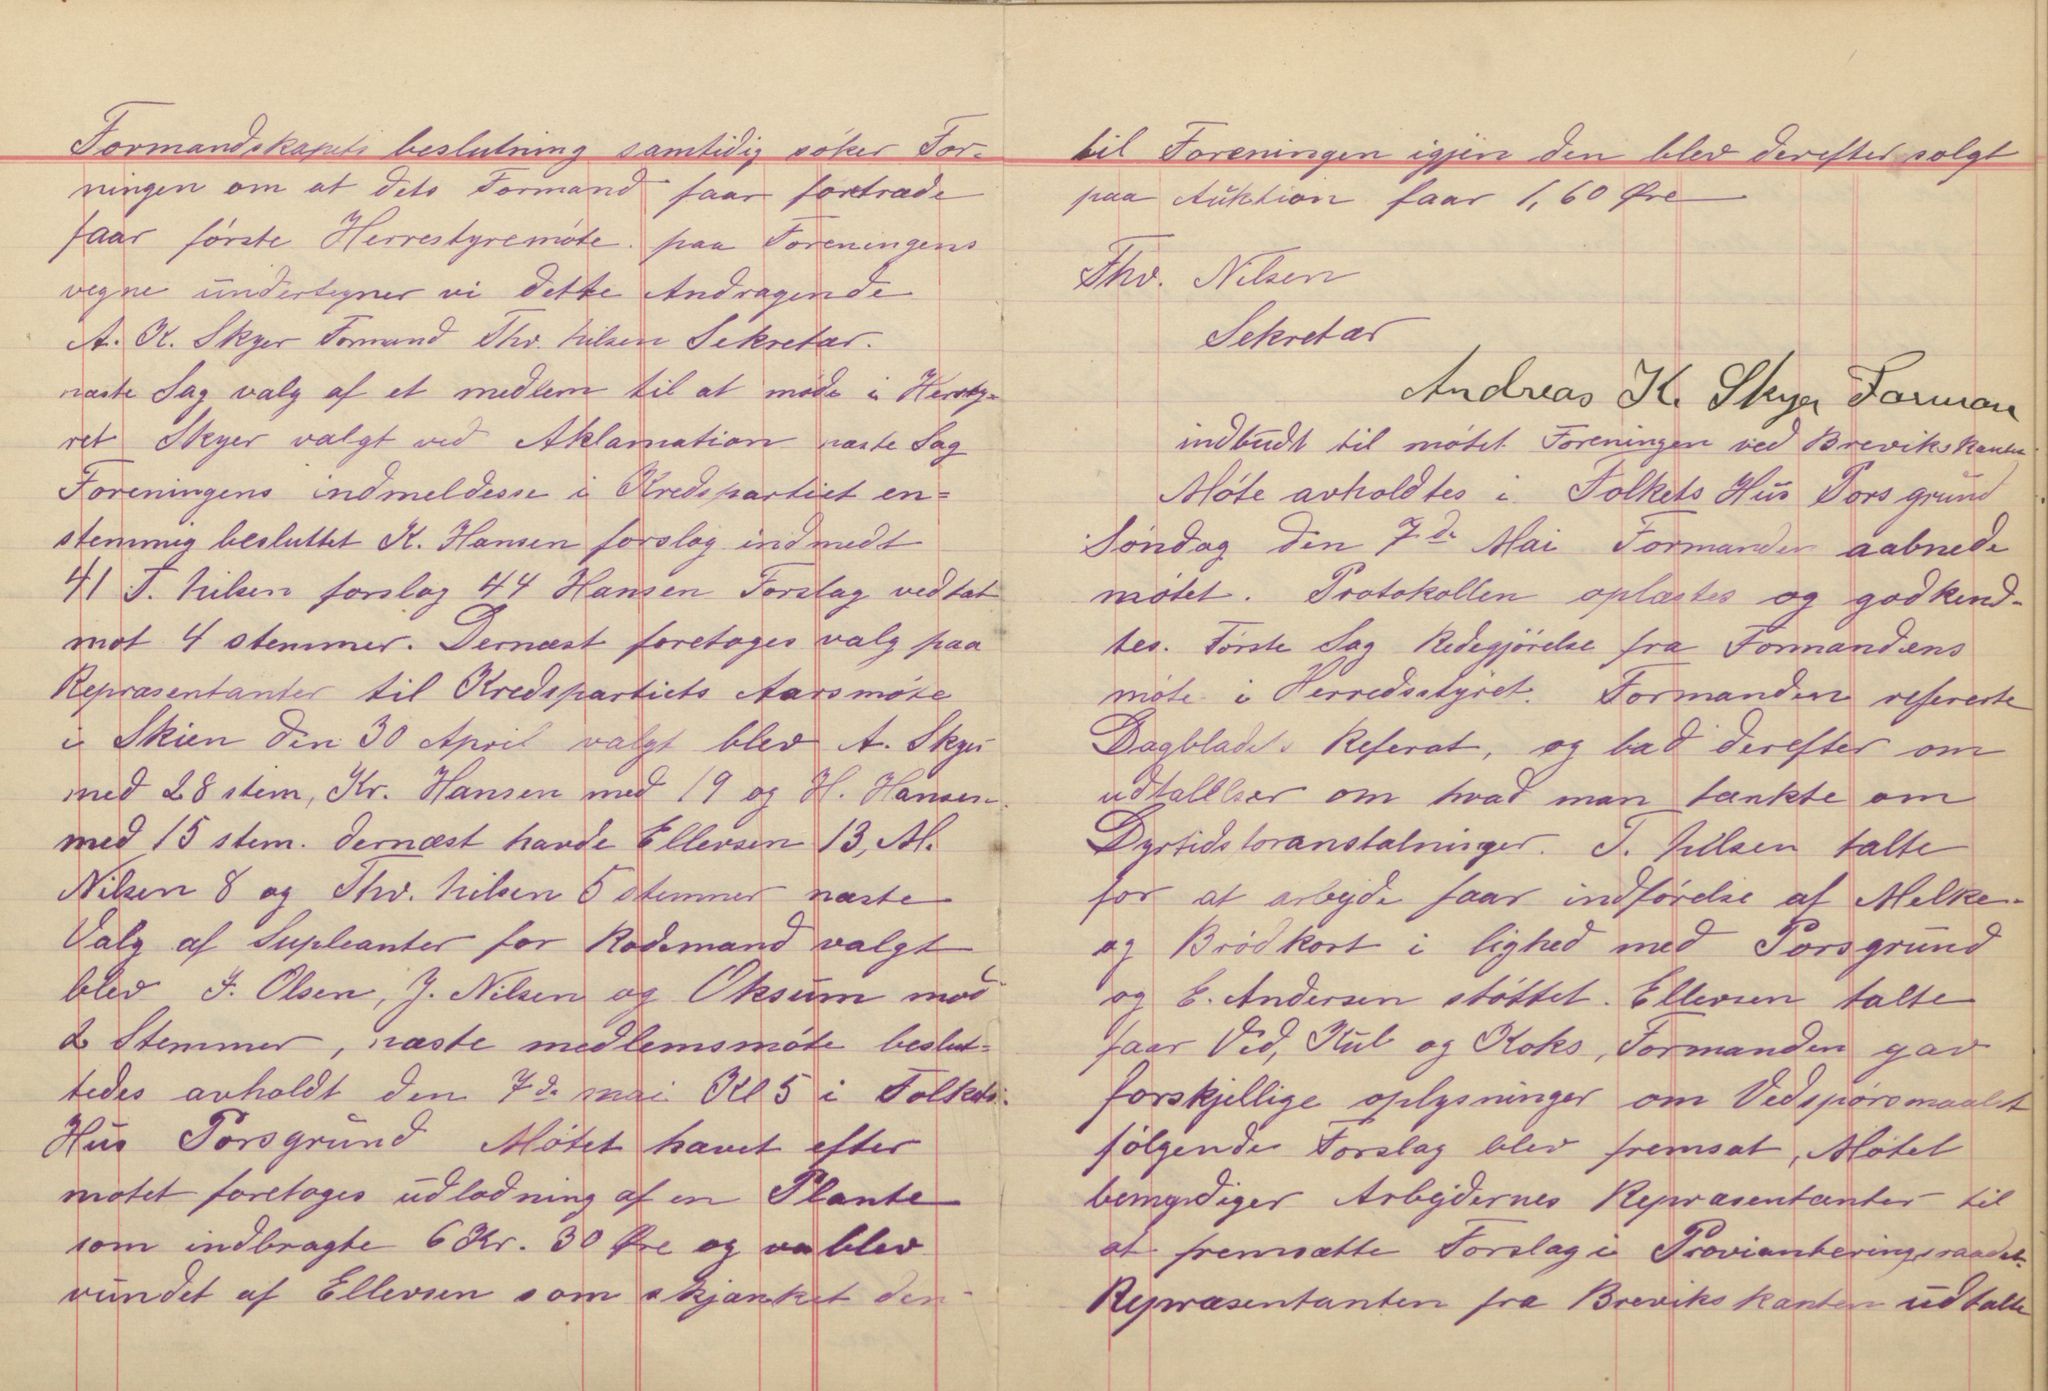 Formandskapets beslutning samtidig søker For-
ningen om at dets Formand faar fortræde
faar første Herrestyremøte. paa Foreningens
vegne undertegner vi dette Andragende
A. K. Skyer Formand Thv. Nilsen Sekretær.
næste Sag valg af et medlem til at møde i Hersty=
ret Skyer valgt ved Aklamation næste Sag
Foreningens indmeldesse i Kredspartiet en=
stemmig besluttet K. Hansen forslag indmedt
41 T. Nilsen forslag 44 Hansen Forslag vedtat
mot 4 stemmer. Dernæst foretoges valg paa
Repræsentanter til Kredspartiets Aarsmøte
i Skien den 30 April valgt blev A. Skyer
med 28 stem, Kr. Hansen med 19 og H. Hansen
med 15 stem. dernæst havde Ellevsen 13, M.
Nilsen 8 og Thv. Nilsen 5 stemmer næste
Valg af Supleanter for Rodemand valgt
blev J. Olsen, J. Nilsen og Oksum med
2 Stemmer, næste medlemsmøte beslut=
tedes avholdt den 7de mai Kl 5 i Folkets
Hus Porsgrund Møtet hævet efter
møtet foretoges udlodning af en Plante
som indbragte 6 Kr. 30 Øre og va blev
vundet af Ellevsen som skjænket den
til Foreningen igjen den blev derefter solgt
paa Auktion faar 1,60 Øre
Thv. Nilsen
Sekretær
Andreas K. Skyer Forman
indbudt til møtet Foreningen ved Brevikskanten
Møte avholdtes i Folkets Hus Porsgrund
Søndag den 7de Mai Formanden aabnede
møtet. Protokollen oplæstes og godkend-
tes. Første Sag Redegjørelse fra Formandens
møte i Herredsstyret. Formanden refererte
Dagbladets Referat, og bad derefter om
udtallelser om hvad man tænkte om
Dyrtidsforanstalninger. T. Nilsen talte
for at arbejde faar indførelse af Melke-
og Brødkort i lighed med Porsgrund
og E. Andersen støttet. Ellevsen talte
faar Ved, Kul og Koks, Formanden gav
forskjellige oplysninger om Vedspørsmaalet
følgende Forslag blev fremsat, Møtet
bemyndiger Arbejdernes Repræsentanter til
at fremsætte Forslag i Provianteringsraadet.
Repræsentanten fra Brevikskanten udtalte